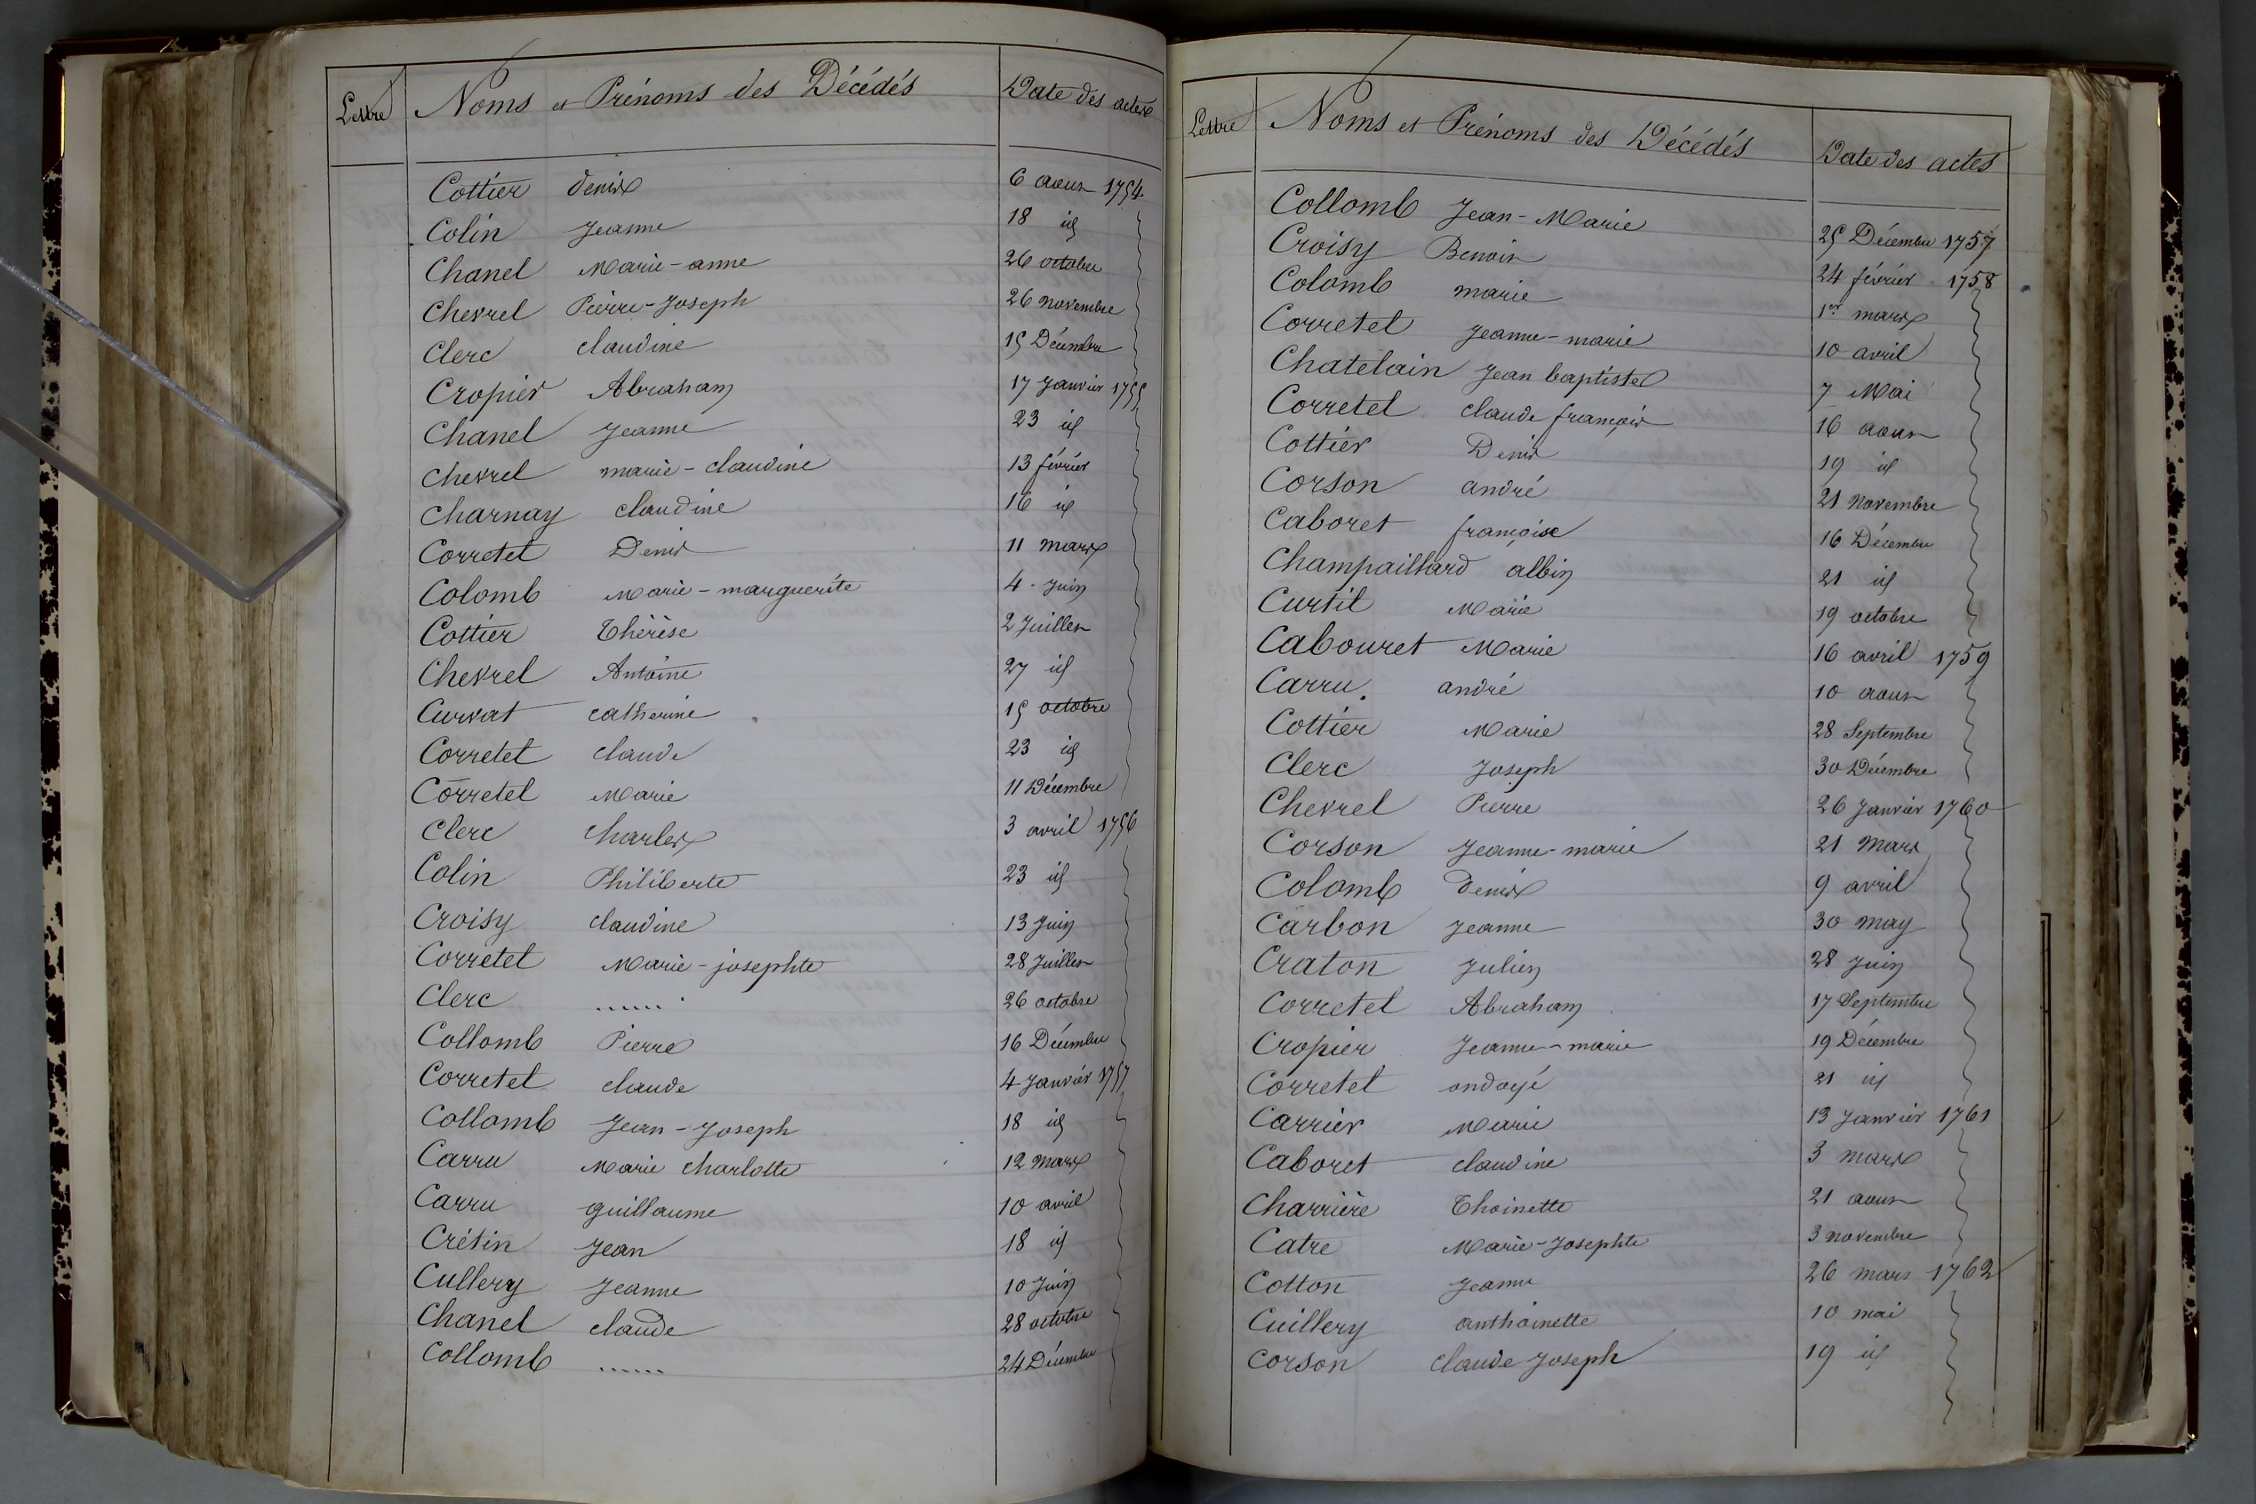 Lettre Noms et Prénoms des Décédés Date des actes
Cottier denis 6 aout 1754
Colin Jeanne 18 id
Chanel Marie-anne 26 octobre
Chevrel Pierre-Joseph 26 novembre
Clerc claudine 15 Décembre
Cropier Abraham 17 Janvier 1755
Chanel Jeanne 23 id
Chevrel marie-claudine 13 février
Charnay claudine 16 id
Corretet Denis 11 mars
Colomb Marie-marguerite 4 Juin
Cottier Thérèse 2 Juillet
Chevrel Antoine 27 id
Curvat catherine 15 octobre
Corretet claude 23 id
Corretel Marie 11 Décembre
Clerc Charles 3 avril 1756
Colin Philiberte 23 id
Croisy claudine 13 Juin
Corretet Marie-josephte 28 Juillet
Clerc ...... 26 octobre
Collomb Pierre 16 Décembre
Corretet claude 4 Janvier 1757
Collomb Jean-Joseph 18 id
Carru Marie charlotte 12 mars
Carru guillaume 10 avril
Crétin Jean 18 id
Cullery Jeanne 10 Juin
Chanel claude 28 octobre
Collomb ...... 24 Décembre
Lettre Noms et Prénoms des Décédés Date des actes
Collomb Jean-Marie 25 Décembre 1757
Croisy Benoit 24 février 1758
Colomb marie 1er mars
Corretel Jeanne-marie 10 avril
Chatelain Jean baptiste 7 Mai
Corretel claude françois 16 aout
Cottier Denis 19 id
Corson andré 21 novembre
Caboret françoise 16 Décembre
Champaillard albin 21 id
Curtil Marie 19 octobre
Cabouret Marie 16 avril 1759
Carru. andré 10 aout
Cottier Marie 28 Septembre
Clerc Joseph 30 Décembre
Chevrel Pierre 26 Janvier 1760
Corson Jeanne-marie 21 Mars
Colomb denis 9 avril
Carbon Jeanne 30 may
Craton Julien 28 Juin
Corretel Abraham 17 Septembre
Cropier Jeanne-marie 19 Décembre
Corretet ondoyé 21 id
Carrier Marie 13 Janvier 1761
Caboret claudine 3 mars
Charrière Thoinette 21 aout
Catre Marie-Josephte 3 novembre
Cotton Jeanne 26 mars 1762
Cuillery anthoinette 10 mai
Corson claude Joseph 19 id